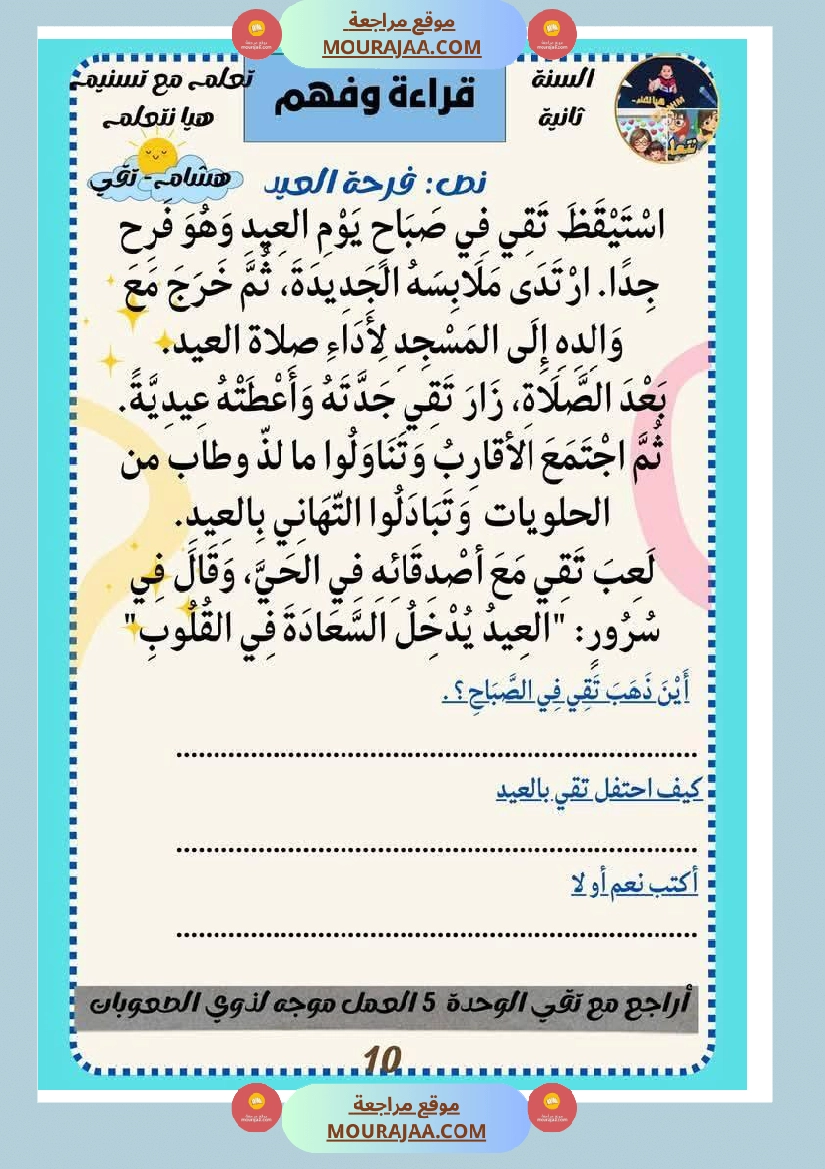 موقع مراجعة
MOURAJAA.COM
تعلمي مع تسنيم
هيا نتعلم
هشام - تقي
قراءة وفهم
السنة
ثانية
نص: فرحة العيد
اسْتَيْقَظَ تَقِي فِي صَبَاحِ يَوْمِ العِيدِ وَهُوَ فَرِح
جِدًا. ارْتَدَى مَلَابِسَهُ الجَدِيدَةَ، ثُمَّ خَرَجَ مَعَ
وَالِدِهِ إِلَى المَسْجِدِ لِأَدَاءِ صلاة العيد.
بَعْدَ الصَّلَاةِ، زَارَ تَقِي جَدَّتَهُ وَأَعْطَتْهُ عِيدِيَّةً.
ثُمَّ اجْتَمَعَ الأقارِبُ وَتَنَاوَلُوا ما لذّ وطاب من
الحلويات وَتَبَادَلُوا التّهَانِي بِالعِيدِ.
لَعِبَ تَقِي مَعَ أصْدِقَائِهِ فِي الحَيَّ، وَقَالَ فِي
سُرُورٍ: "العِيدُ يُدْخِلُ السَّعَادَةَ فِي القُلُوبِ"
أَيْنَ ذَهَبَ تَقِي فِي الصَّبَاحِ؟ .
كيف احتفل تقي بالعيد
أكتب نعم أو لا
أراجع مع تقي الوحدة 5 العمل موجه لذوي الصعوبات
10
موقع مراجعة
MOURAJAA.COM